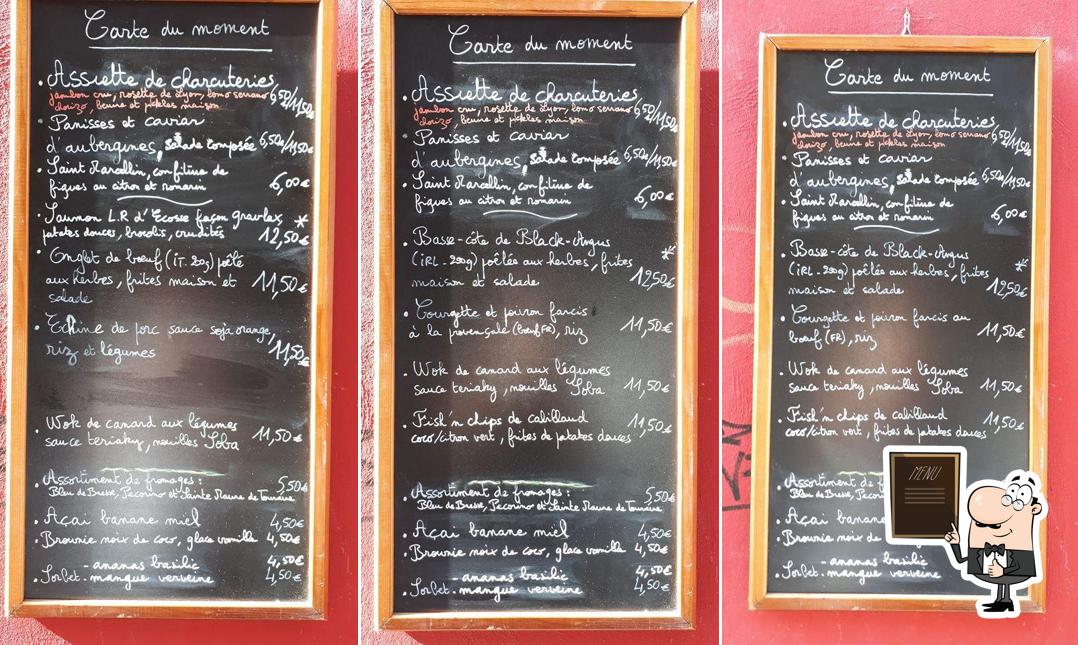 Carte du moment
. Assiette de charcuteries
jambon cru, rosette de Lyon, lomo serrano
chorizo, beurre et pickles maison 6,50€/11,50€
. Panisses et caviar
d'aubergines, salade composée 6,50€/11,50€
. Saint Marcellin, confiture de
figues au citron et romarin 6,00€
. Saumon L.R d'Ecosse façon gravlax, *
patates douces, brocolis, crudités 12,50€
. Onglet de bœuf (IT. 20g) poêlé
aux herbes, frites maison et 11,50€
salade
. Echine de porc sauce soja orange,
riz et légumes 11,50€
. Wok de canard aux légumes
sauce teriaky, nouilles Soba 11,50€
. Assortiment de fromages : 5,50€
Bleu de Bresse, Pecorino et Sainte Maure de Touraine
. Açaï banane miel 4,50€
. Brownie noix de coco, glace vanille 4,50€
- ananas basilic 4,50€
. Sorbet - mangue verveine 4,50€
Carte du moment
. Assiette de charcuteries
jambon cru, rosette de Lyon, lomo serrano
chorizo, beurre et pickles maison 6,50€/11,50€
. Panisses et caviar
d'aubergines, salade composée 6,50€/11,50€
. Saint Marcellin, confiture de
figues au citron et romarin 6,00€
. Basse-côte de Black-Angus *
(IRL - 200g) poêlée aux herbes, frites
maison et salade 12,50€
. Courgette et poivron farcis
à la provençale (bœuf FR), riz 11,50€
. Wok de canard aux légumes
sauce teriaky, nouilles Soba 11,50€
. Fish'n chips de cabillaud
coco/citron vert, frites de patates douces 11,50€
. Assortiment de fromages : 5,50€
Bleu de Bresse, Pecorino et Sainte Maure de Touraine
. Açaï banane miel 4,50€
. Brownie noix de coco, glace vanille 4,50€
- ananas basilic 4,50€
. Sorbet - mangue verveine 4,50€
Carte du moment
. Assiette de charcuteries
jambon cru, rosette de Lyon, lomo serrano
chorizo, beurre et pickles maison 6,50€/11,50€
. Panisses et caviar
d'aubergines, salade composée 6,50€/11,50€
. Saint Marcellin, confiture de
figues au citron et romarin 6,00€
. Basse-côte de Black-Angus *
(IRL - 200g) poêlée aux herbes, frites
maison et salade 12,50€
. Courgette et poivron farcis au
bœuf (FR), riz 11,50€
. Wok de canard aux légumes
sauce teriaky, nouilles Soba 11,50€
. Fish'n chips de cabillaud
coco/citron vert, frites de patates douces 11,50€
. Assortiment de f
Bleu de Bresse, Pecor
. Açaï banane
. Brownie noix de
- ananas basilic
. Sorbet - mangue verveine
MENU